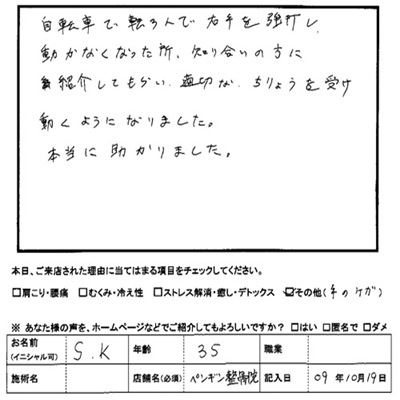 自転車で転んで右手を強打し、
動かなくなった所、知り合いの方に
紹介してもらい、適切な、ちりょうを受け
動くようになりました。
本当に助かりました。
本日、ご来店された理由に当てはまる項目をチェックしてください。
□肩こり・腰痛 □むくみ・冷え性 □ストレス解消・癒し・デトックス ☑その他(手のケガ)
※ あなた様の声を、ホームページなどでご紹介してもよろしいですか? □はい □匿名で □ダメ
お名前(イニシャル可) S.K 年齢 35 職業
施術名 店舗名(必須) ペンギン整骨院 記入日 09年10月19日